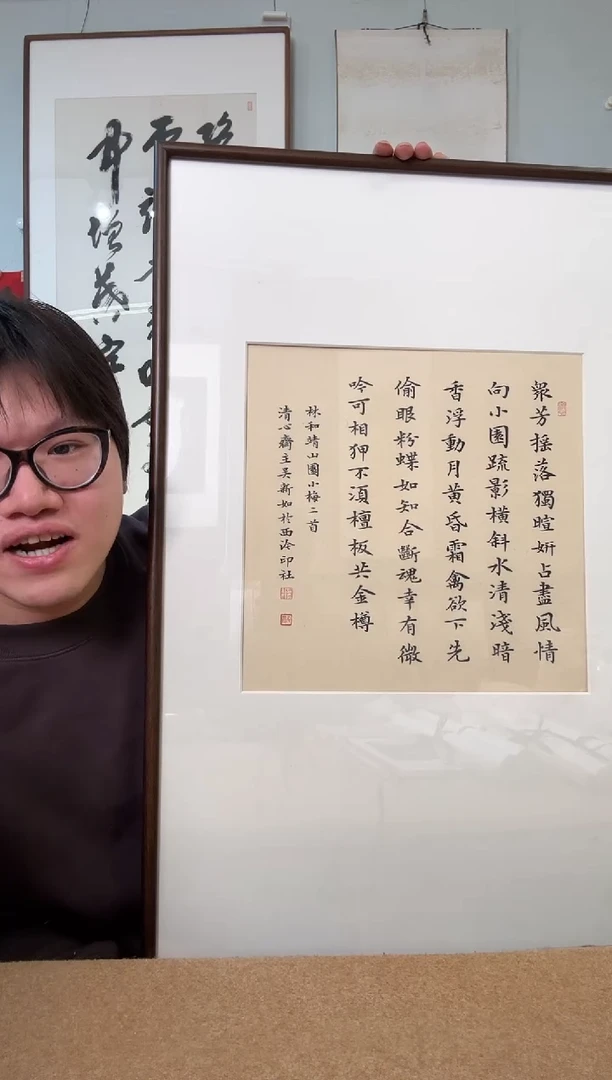 眾芳揺落獨暄妍占盡風情
向小園踈影横斜水清淺暗
香浮動月黄昏霜禽欲下先
偷眼粉蝶如知合斷魂幸有微
吟可相狎不湏檀板共金樽
林和靖山園小梅二首
清心齋主吴新如於西泠印社
增茂宰